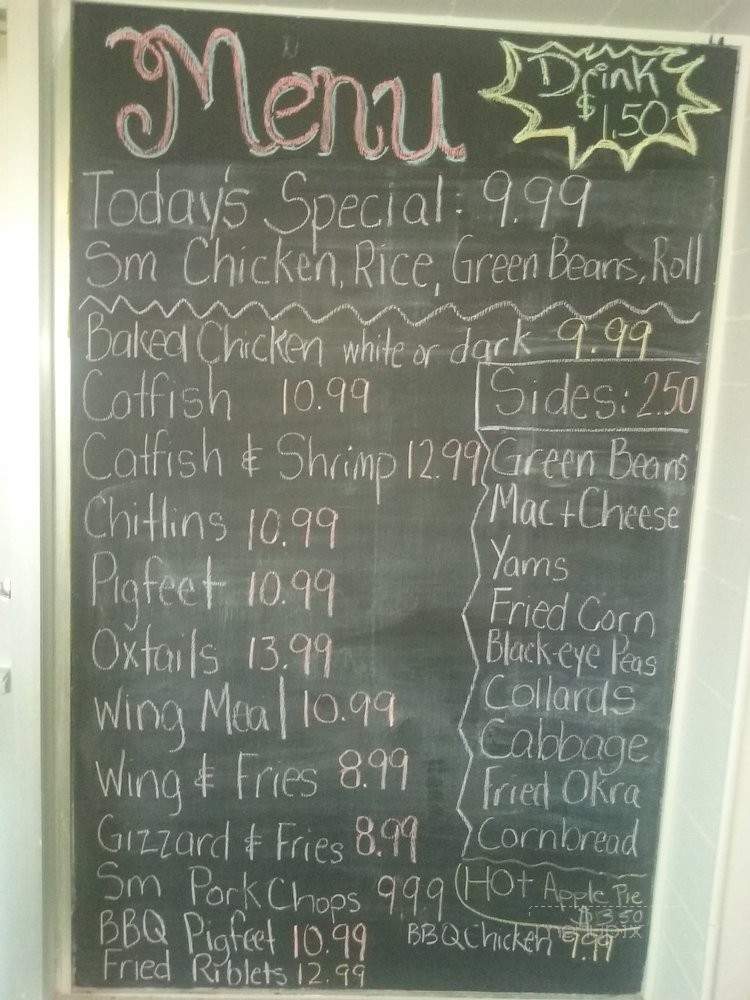 Menu
Drink
$1.50
Today's Special: 9.99
Sm Chicken, Rice, Green Beans, Roll
Baked Chicken white or dark 9.99
Catfish 10.99
Catfish & Shrimp 12.99
Chitlins 10.99
Pigfeet 10.99
Oxtails 13.99
Wing Meal 10.99
Wing & Fries 8.99
Gizzard & Fries 8.99
Sm Pork Chops 9.99
BBQ Pigfeet 10.99
Fried Riblets 12.99
Sides: 2.50
Green Beans
Mac + Cheese
Yams
Fried Corn
Black-eye Peas
Collards
Cabbage
Fried Okra
Cornbread
HOt Apple Pie
$3.50
BBQ Chicken 9.99